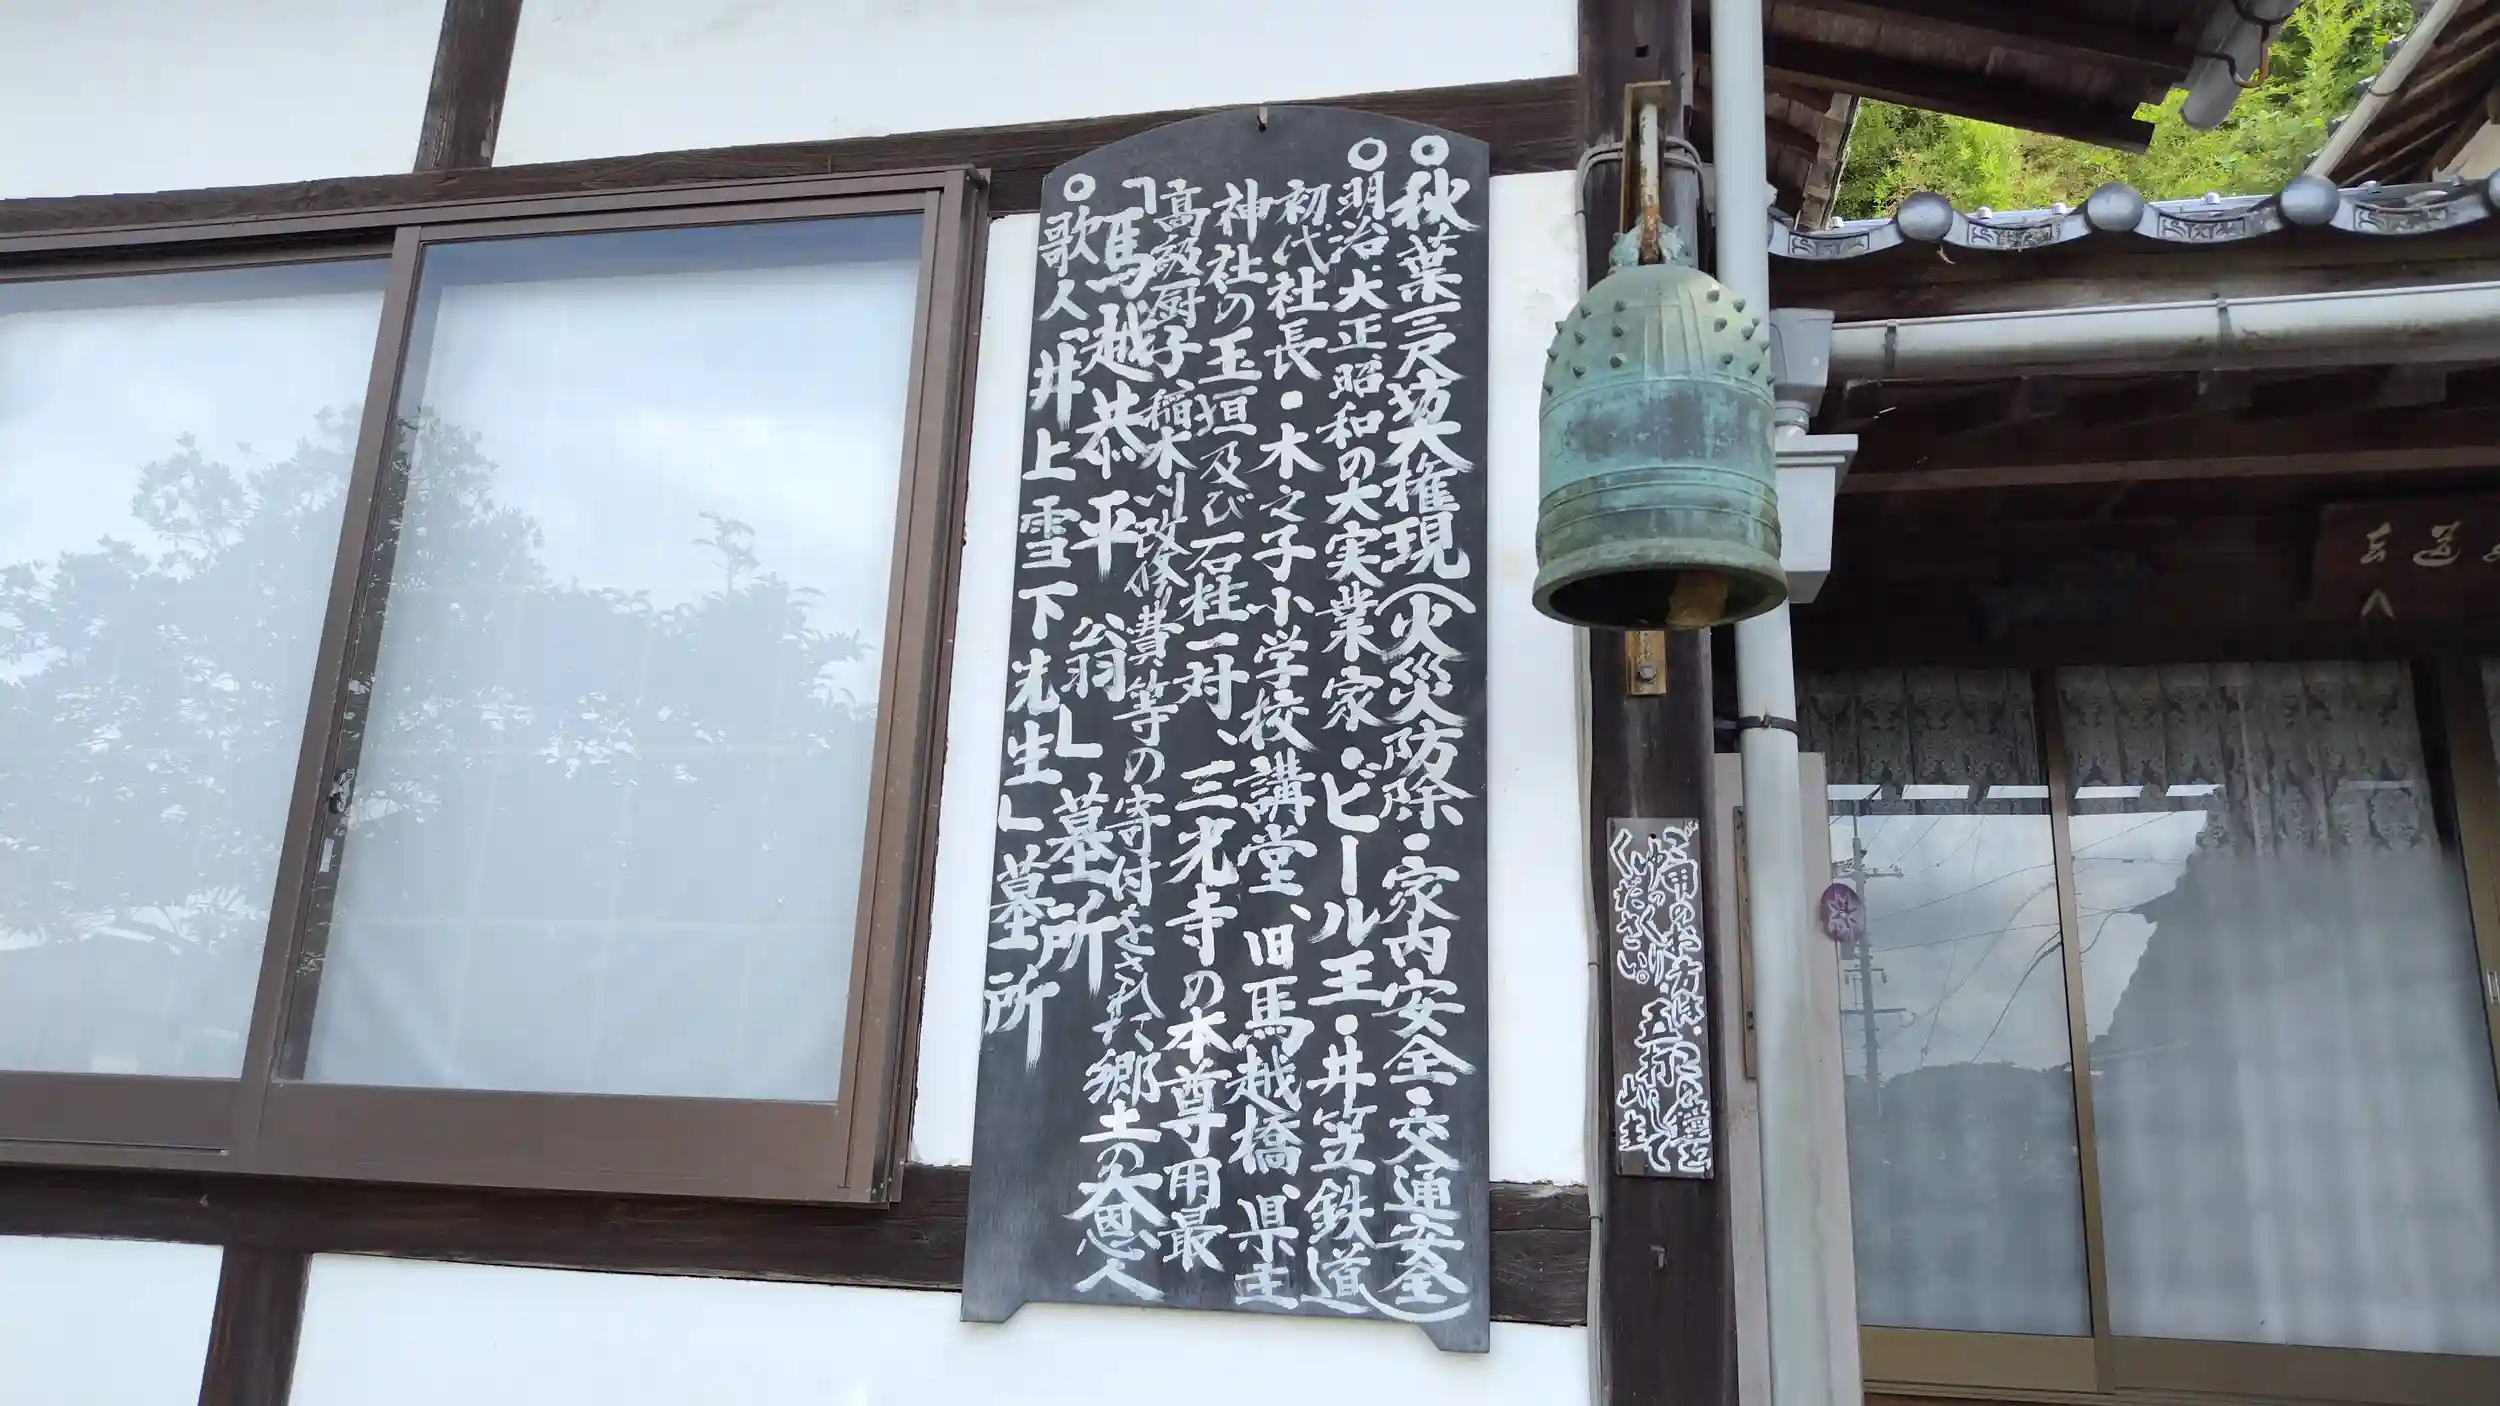 ○秋葉三尺坊大権現(火災防除・家内安全・交通安全)
○明治、大正、昭和の大実業家・ビール王・井笠鉄道
初代社長・木之子小学校講堂、旧馬越橋、県主
神社の玉垣及び石柱一対、三光寺の本尊用最
高級厨子、稲木川改修費等の寄付をされた郷土の大恩人
「馬越恭平 翁」墓所
○歌人「井上雪下先生」墓所
ご用のお方様、五打この鐘を
ゆっくり 叩いて
ください。